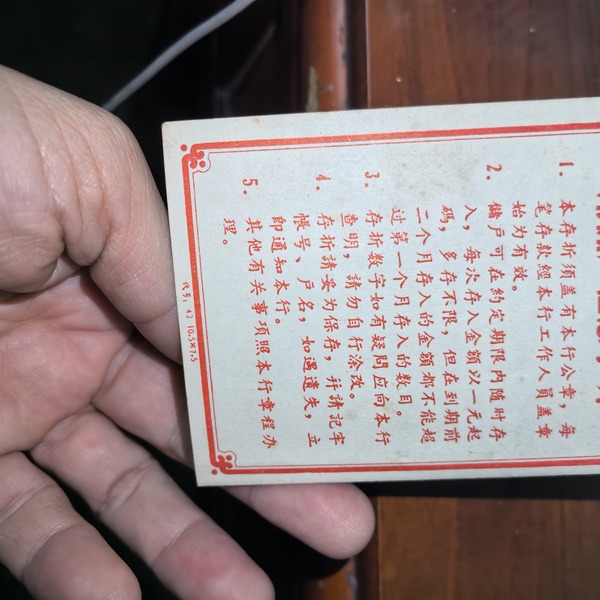 1. 本存折须盖有本行公章，每
笔存款經本行工作人员盖章
始为有效。
2. 储户可在約定期限内随时存
入，每次存入金额以一元起
碼，多存不限，但在到期前
二个月存入的金额都不能超
过第一个月存入的数目。
3. 存折数字如有疑問应向本行
查明，請勿自行涂改。
4. 存折請妥为保存，幷請記牢
帳号、户名，如遇遺失，立
即通知本行。
5. 其他有关事項照本行章程办
理。
代号：42 10.5×7.5